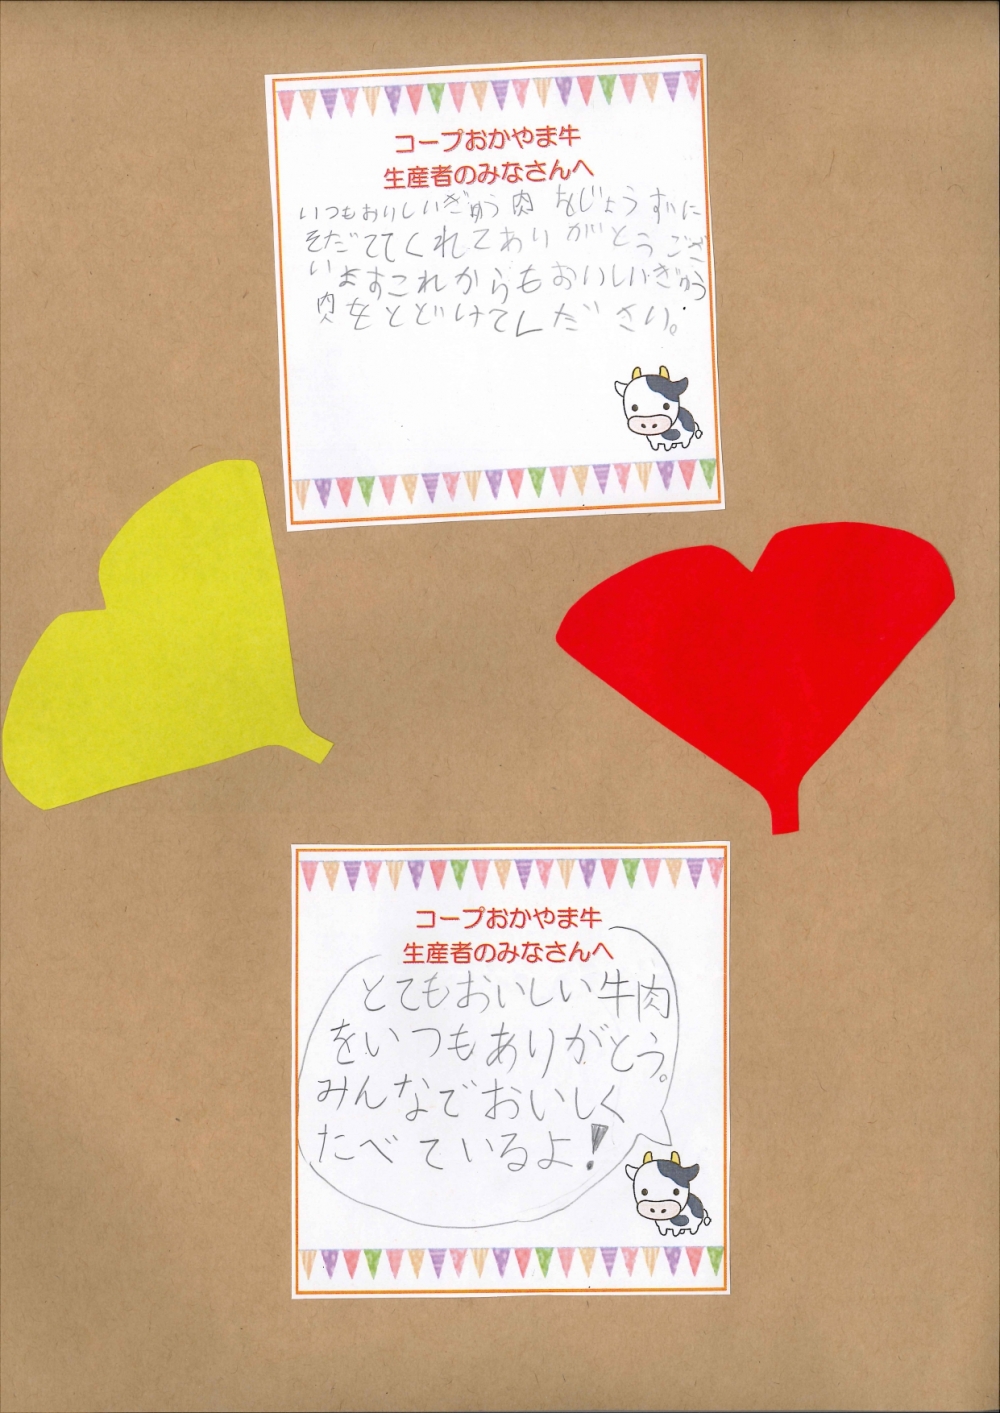 コープおかやま牛
生産者のみなさんへ
いつもおりしいぎゅう肉をじょうずに
そだててくれてありがとうござ
いますこれからもおいしいぎゅう
肉をとどけてください。
コープおかやま牛
生産者のみなさんへ
とてもおいしい牛肉
をいつもありがとう。
みんなでおいしく
たべているよ!